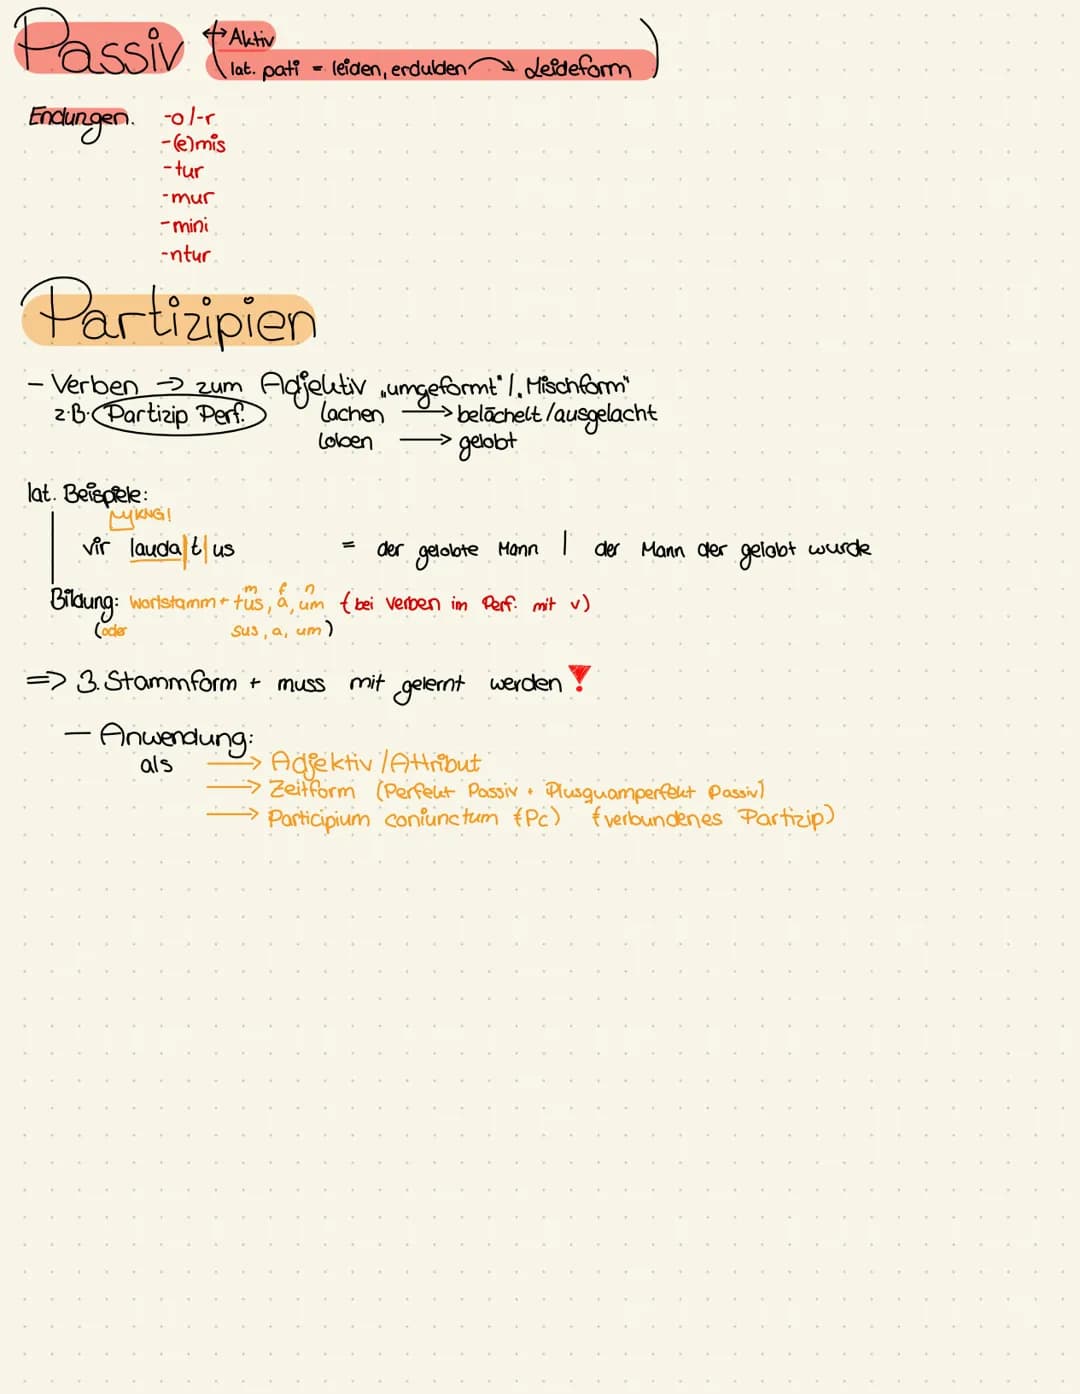 Passiv (↔ Aktiv
lat. pati = leiden, erdulden → Leideform)
Endungen. -o/-r
-(e)mis
-tur
-mur
-mini
-ntur
Partizipien
- Verben → zum Adjektiv „umgeformt" / „Mischform"
z.B. Partizip Perf. lachen → belächelt/ausgelacht
loben → gelobt
lat. Beispiele:
KNG!
vir lauda|t|us = der gelobte Mann | der Mann der gelobt wurde
m f n
Bildung: Wortstamm + tus, a, um (bei Verben im Perf. mit v)
(oder sus, a, um)
=> 3. Stammform + muss mit gelernt werden!
- Anwendung:
als → Adjektiv / Attribut
→ Zeitform (Perfekt Passiv + Plusquamperfekt Passiv)
→ Participium coniunctum (Pc) (verbundenes Partizip)